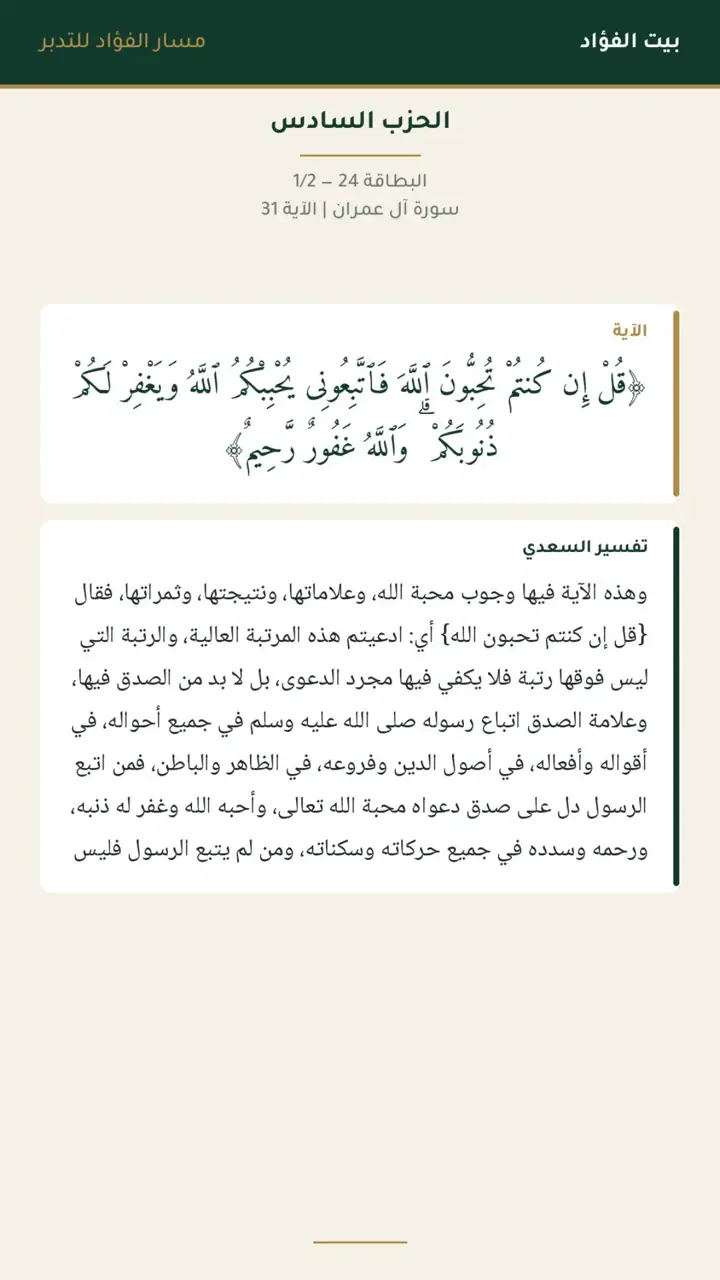 بيت الفؤاد
مسار الفؤاد للتدبر
الحزب السادس
البطاقة 24 – 1/2
سورة آل عمران | الآية 31
الآية
﴿قُلْ إِن كُنتُمْ تُحِبُّونَ ٱللَّهَ فَٱتَّبِعُونِى يُحْبِبْكُمُ ٱللَّهُ وَيَغْفِرْ لَكُمْ
ذُنُوبَكُمْ ۗ وَٱللَّهُ غَفُورٌ رَّحِيمٌ﴾
تفسير السعدي
وهذه الآية فيها وجوب محبة الله، وعلاماتها، ونتيجتها، وثمراتها، فقال
{قل إن كنتم تحبون الله} أي: ادعيتم هذه المرتبة العالية، والرتبة التي
ليس فوقها رتبة فلا يكفي فيها مجرد الدعوى، بل لا بد من الصدق فيها،
وعلامة الصدق اتباع رسوله صلى الله عليه وسلم في جميع أحواله، في
أقواله وأفعاله، في أصول الدين وفروعه، في الظاهر والباطن، فمن اتبع
الرسول دل على صدق دعواه محبة الله تعالى، وأحبه الله وغفر له ذنبه،
ورحمه وسدده في جميع حركاته وسكناته، ومن لم يتبع الرسول فليس